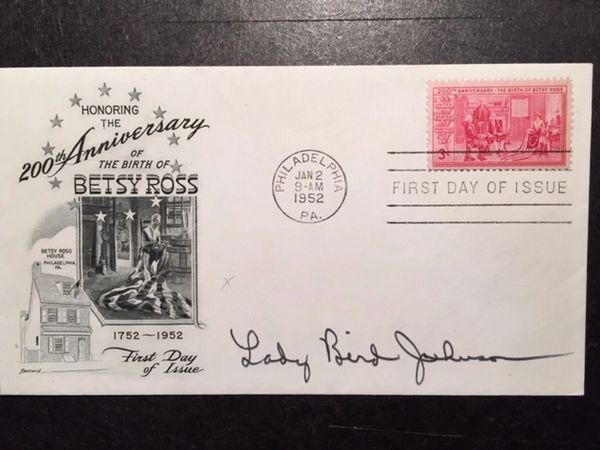 HONORING
THE
200th Anniversary
OF
THE BIRTH OF
BETSY ROSS
BETSY ROSS
HOUSE
PHILADELPHIA,
PA.
1752—1952
First Day
of Issue
PHILADELPHIA
JAN 2
9-AM
1952
PA.
200TH ANNIVERSARY - THE BIRTH OF BETSY ROSS
3¢
FIRST DAY OF ISSUE
x
Lady Bird Johnson